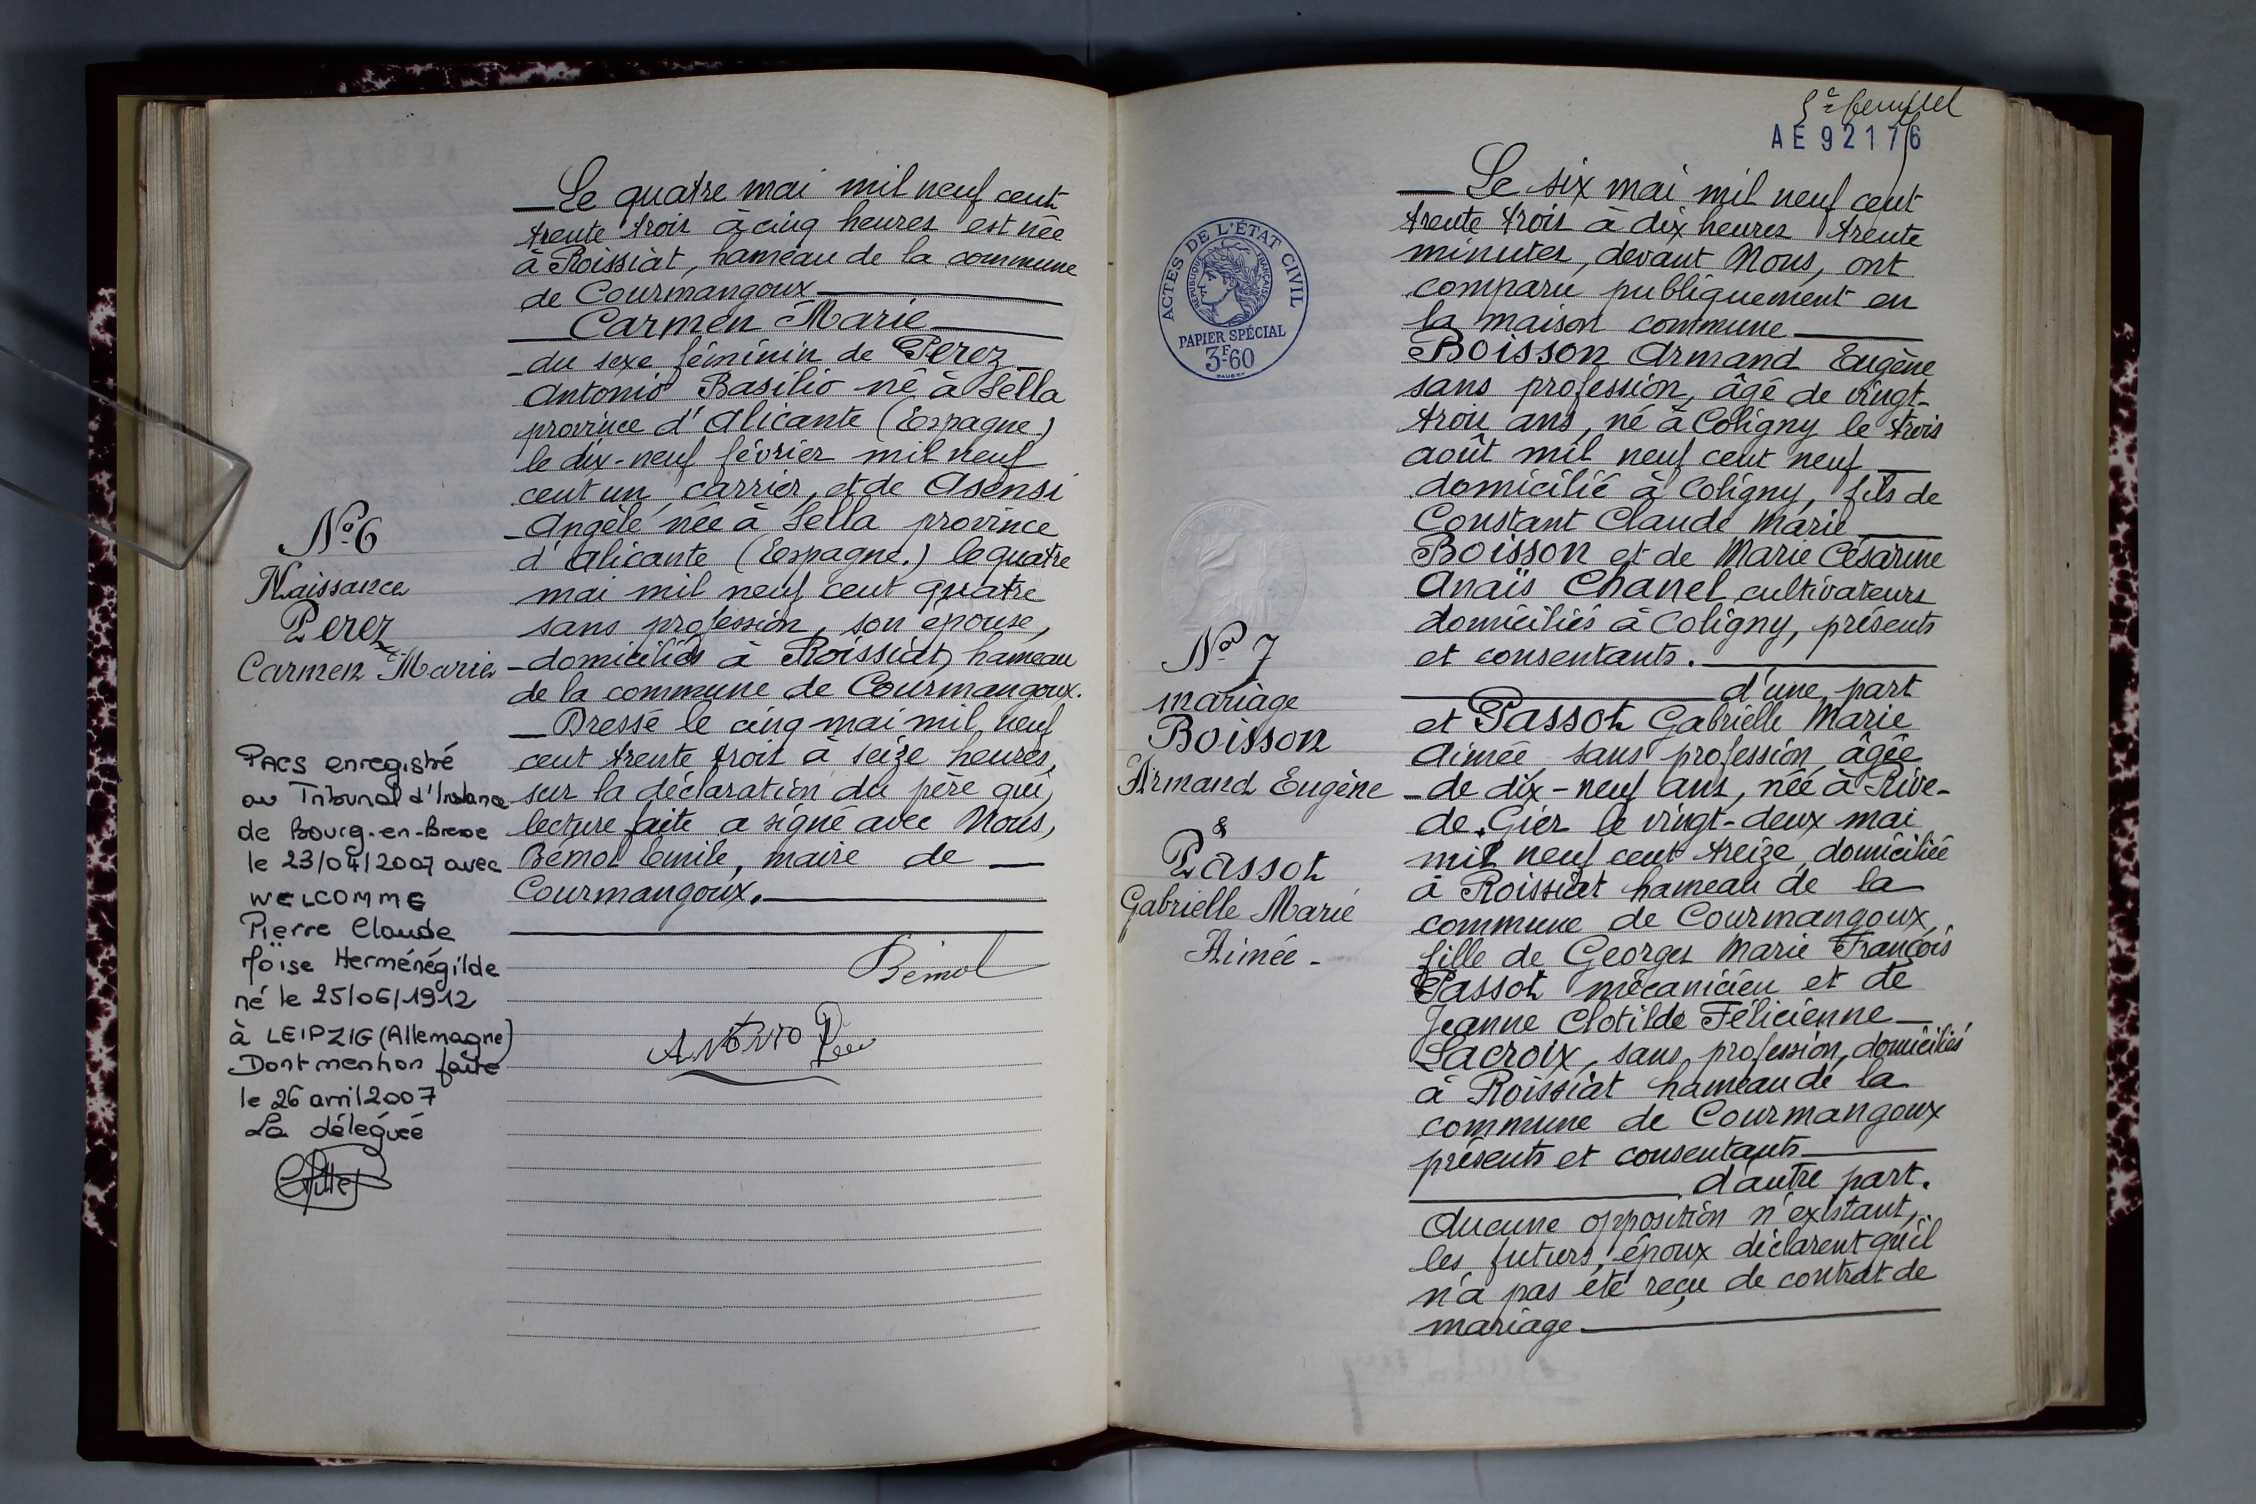 Le quatre mai mil neuf cent
trente trois à cinq heures est née
à Roissiat, hameau de la commune
de Courmangoux
Carmen Marie
du sexe féminin de Perez
Antonio Basilio né à Sella
province d'Alicante (Espagne)
le dix-neuf février mil neuf
cent un, carrier, et de Asensi
Angèle née à Sella province
d'Alicante (Espagne.) le quatre
mai mil neuf cent quatre
sans profession, son épouse,
domiciliés à Roissiat, hameau
de la commune de Courmangoux.
Dressé le cinq mai mil neuf
cent trente trois à seize heures,
sur la déclaration du père qui,
lecture faite a signé avec Nous,
Bémol Emile, maire de
Courmangoux.
Bémol
ANTONIO
No 6
Naissance
Perez
Carmen Marie
PACS enregistré
au Tribunal d'Instance
de Bourg-en-Bresse
le 23/04/2007 avec
WELCOMME
Pierre Claude
Moïse Herménégilde
né le 25/06/1912
à LEIPZIG (Allemagne)
Dont mention faite
le 26 avril 2007
La déléguée
AE 92176
ACTES DE L'ÉTAT CIVIL
RÉPUBLIQUE FRANÇAISE
PAPIER SPÉCIAL
3F60
No 7
mariage
Boisson
Armand Eugène
&
Passot
Gabrielle Marie
Aimée -
Le six mai mil neuf cent
trente trois à dix heures trente
minutes, devant Nous, ont
comparu publiquement en
la maison commune
Boisson Armand Eugène
sans profession, âgé de vingt-
trois ans, né à Coligny le trois
août mil neuf cent neuf
domicilié à Coligny, fils de
Constant Claude Marie
Boisson et de Marie Césarine
Anaïs Chanel cultivateurs
domiciliés à Coligny, présents
et consentants.
d'une part
et Passot Gabrielle Marie
Aimée sans profession, âgée
de dix-neuf ans, née à Rive-
de-Gier le vingt-deux mai
mil neuf cent treize, domiciliée
à Roissiat hameau de la
commune de Courmangoux,
fille de Georges Marie François
Passot mécanicien et de
Jeanne Clotilde Félicienne
Lacroix, sans profession, domiciliés
à Roissiat hameau de la
commune de Courmangoux
présents et consentants
d'autre part.
Aucune opposition n'existant,
les futurs époux déclarent qu'il
n'a pas été reçu de contrat de
mariage